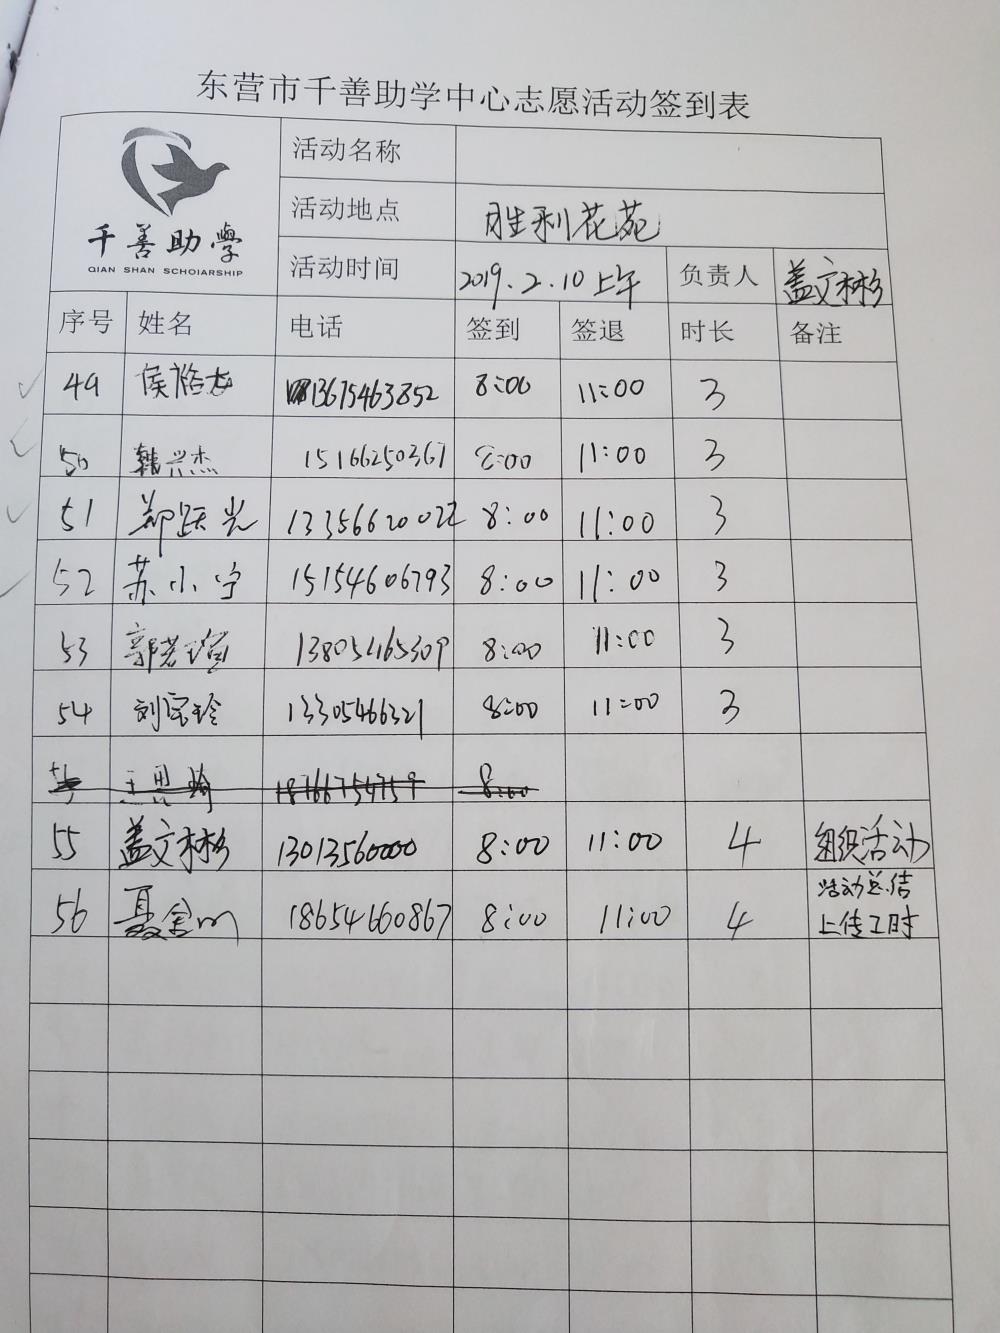 东营市千善助学中心志愿活动签到表
千善助學
QIAN SHAN SCHOIARSHIP
活动名称
活动地点 胜利花苑
活动时间 2019.2.10上午 负责人 盖文彬
序号 姓名 电话 签到 签退 时长 备注
49 侯 13615463852 8:00 11:00 3
50 韩兴杰 15166250367 8:00 11:00 3
51 郑跃光 13356620022 8:00 11:00 3
52 苏小宁 15154606793 8:00 11:00 3
53 郭若瑄 13805465309 8:00 11:00 3
54 刘宝玲 13305466321 8:00 11:00 3
8:00
55 盖文彬 13013560000 8:00 11:00 4 组织活动
56 聂 18654660867 8:00 11:00 4 活动总结
上传工时